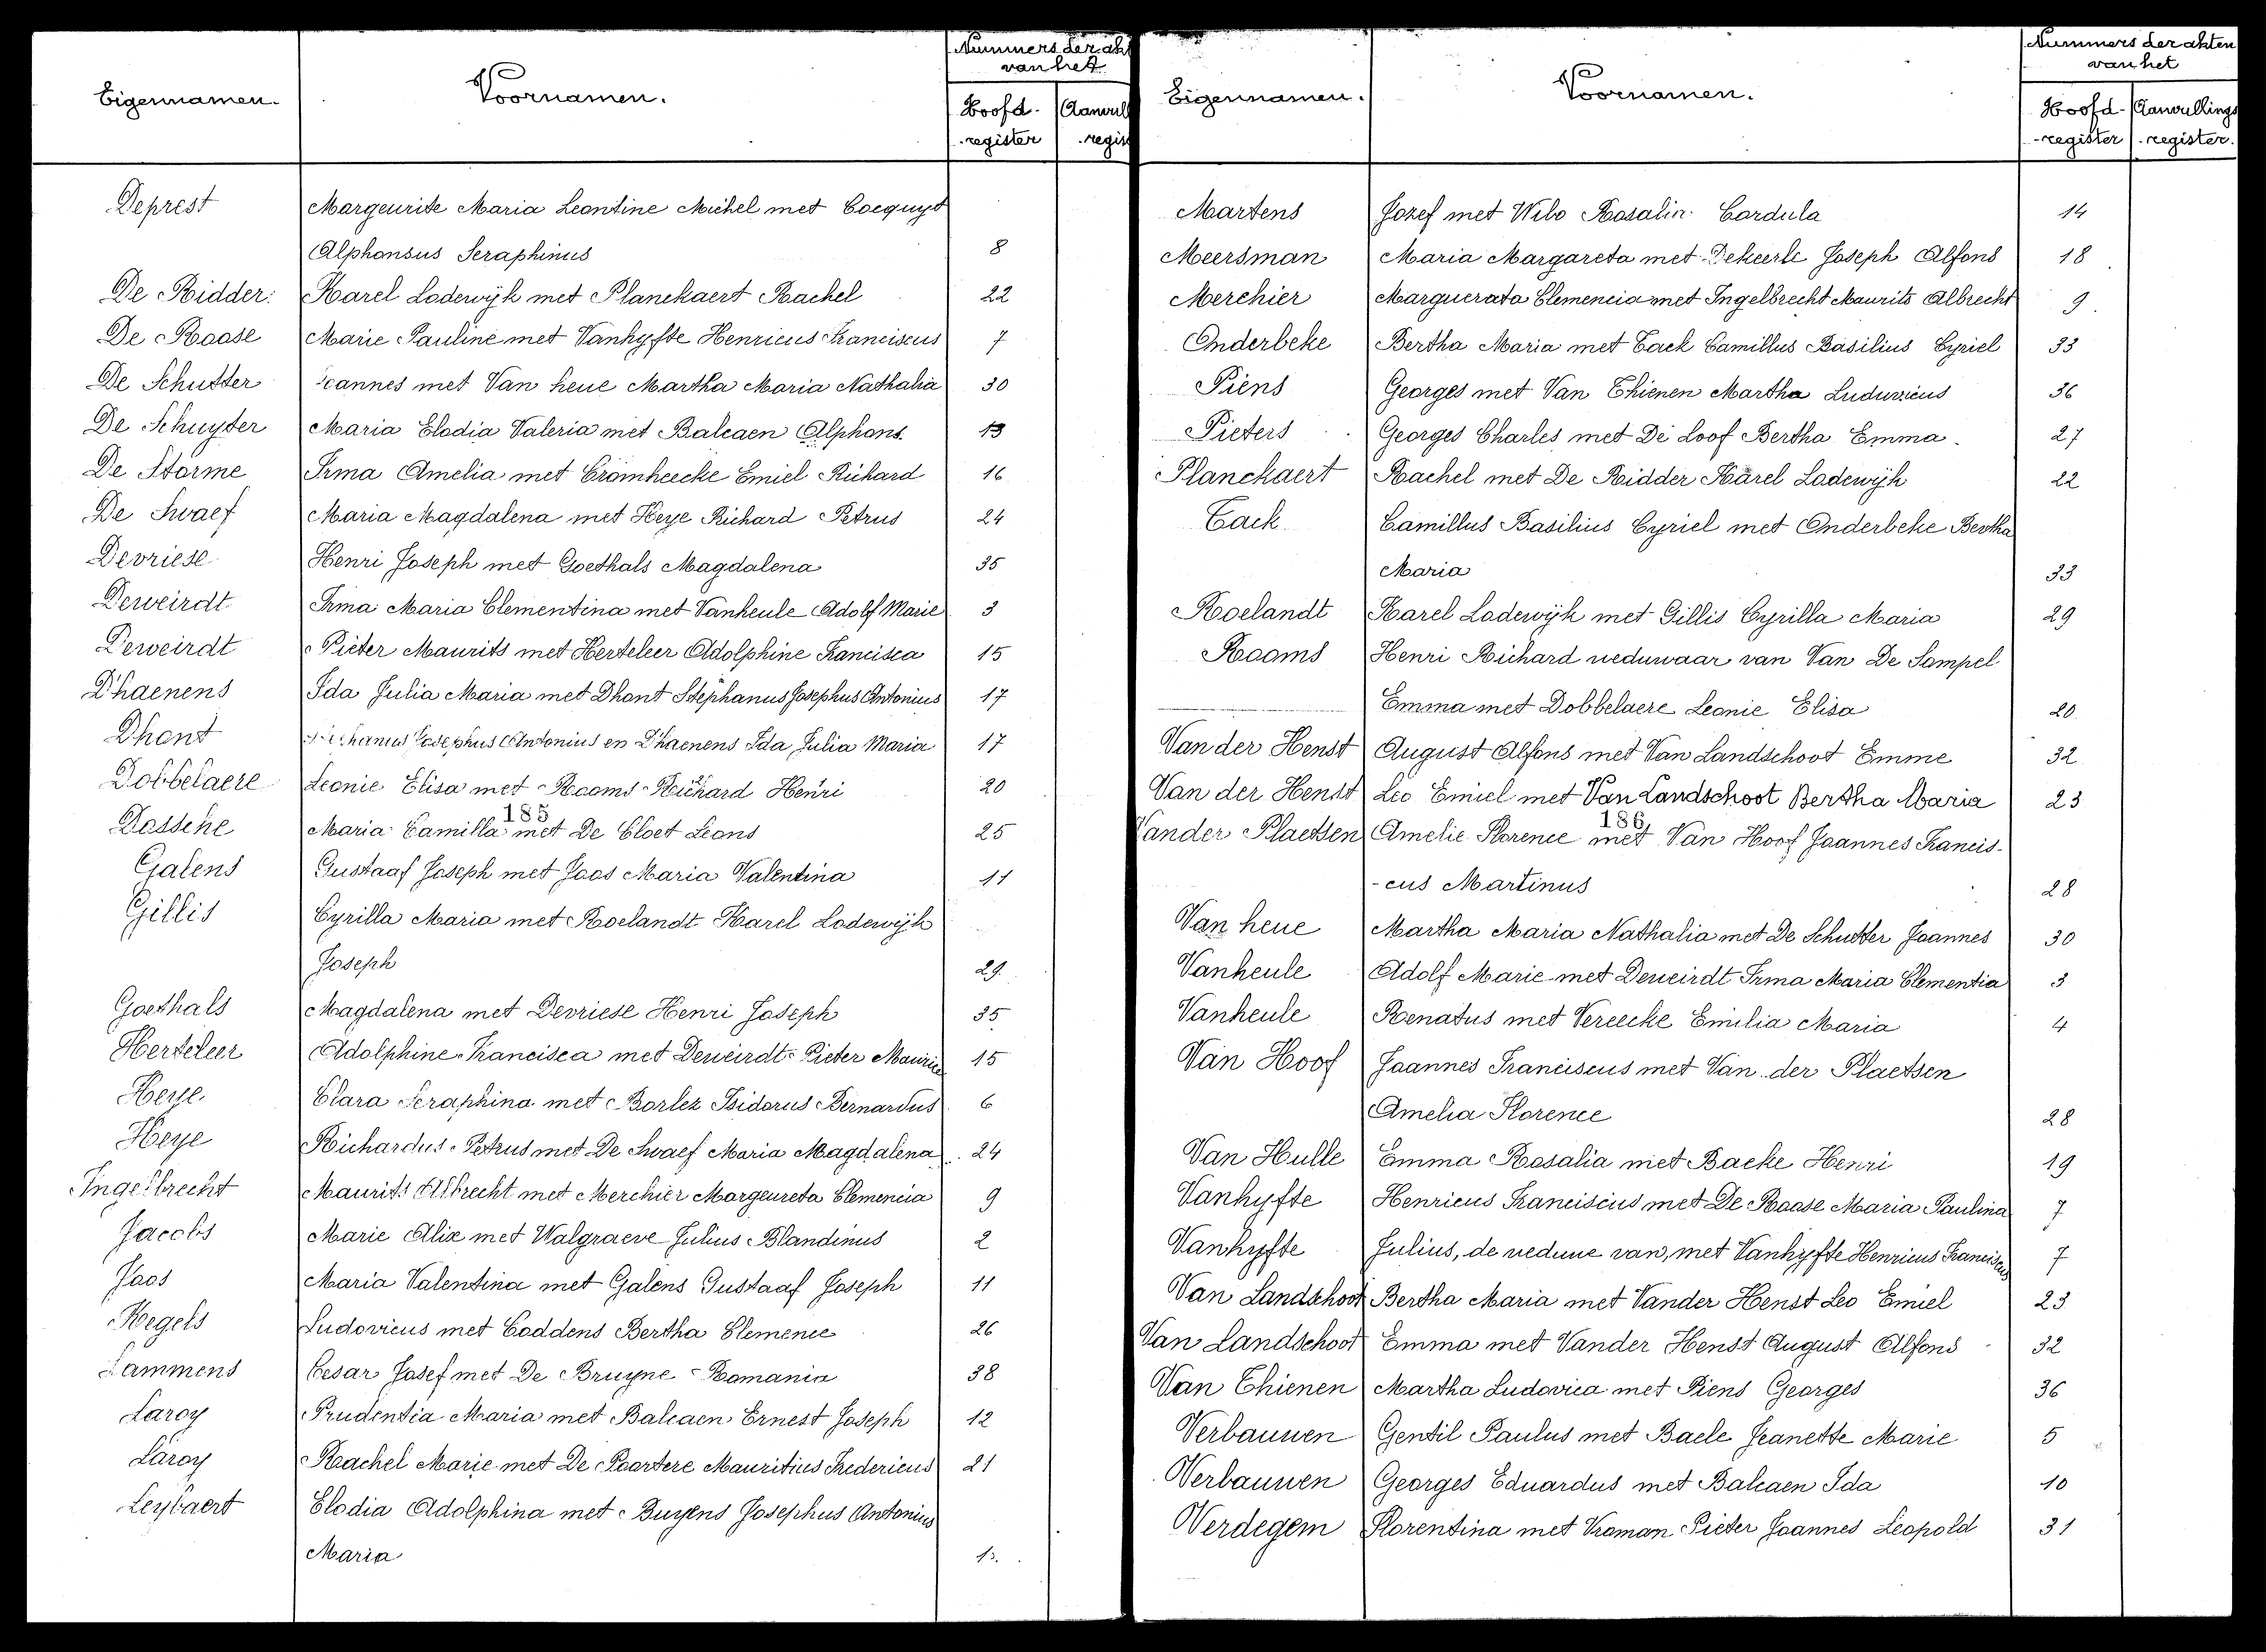 Nummers der akt
van het
Eigennamen.
Voornamen.
Hoofd-
register
Aanvull
regis
Deprest Margeurite Maria Leontine Michel met Cocquyt
Alphonsus Seraphinus 8
De Ridder Karel Lodewijk met Planckaert Rachel 22
De Roose Marie Pauline met Vanhyfte Henricus Franciscus 7
De Schutter Joannes met Van heue Martha Maria Nathalia 30
De Schuyter Maria Elodia Valeria met Balcaen Alphons 13
De Storme Irma Amelia met Cromheecke Emiel Richard 16
De Swaef Maria Magdalena met Heye Richard Petrus 24
Devriese Henri Joseph met Goethals Magdalena 35
Deweirdt Irma Maria Clementina met Vanheule Adolf Marie 3
Deweirdt Pieter Maurits met Herteleer Adolphine Francisca 15
D'haenens Ida Julia Maria met Dhont Stephanus Josephus Antonius 17
Dhont Stephanus Josephus Antonius en D'haenens Ida Julia Maria 17
Dobbelaere Leonie Elisa met Rooms Richard Henri 20
185
Dossche Maria Camilla met De Cloet Leons 25
Galens Gustaaf Joseph met Joos Maria Valentina 11
Gillis Cyrilla Maria met Roelandt Karel Lodewijk
Joseph 29
Goethals Magdalena met Devriese Henri Joseph 35
Herteleer Adolphine Francisca met Deweirdt Pieter Maurice 15
Heye Clara Seraphina met Borlez Isidorus Bernardus 6
Heye Richardus Petrus met De Swaef Maria Magdalena 24
Ingelbrecht Maurits Albrecht met Merchier Margeureta Clemencia 9
Jacobs Marie Alix met Walgraeve Julius Blandinus 2
Joos Maria Valentina met Galens Gustaaf Joseph 11
Kegels Ludovicus met Coddens Bertha Clemence 26
Lammens Cesar Josef met De Bruyne Romania 38
Laroy Prudentia Maria met Balcaen Ernest Joseph 12
Laroy Rachel Marie met De Poortere Mauritius Fredericus 21
Leybaert Elodia Adolphina met Buyens Josephus Antonius
Maria
Nummers der akten
van het
Eigennamen.
Voornamen.
Hoofd-
-register
Aanvullings
register.
Martens Jozef met Wilo Rosalin Cordula 14
Meersman Maria Margareta met Dekeerle Joseph Alfons 18
Merchier Marguerata Clemencia met Ingelbrecht Maurits Albrecht 9
Onderbeke Bertha Maria met Cack Camillus Basilius Cyriel 33
Piens Georges met Van Thienen Martha Luduvicus 36
Pieters Georges Charles met De Loof Bertha Emma 27
Planckaert Rachel met De Ridder Karel Lodewijk 22
Cack Camillus Basilius Cyriel met Onderbeke Bertha
Maria 33
Roelandt Karel Lodewijk met Gillis Cyrilla Maria 29
Rooms Henri Richard weduwaar van Van De Sompel
Emma met Dobbelaere Leonie Elisa 20
Van der Henst August Alfons met Van Landschoot Emme 32
Van der Henst Leo Emiel met Van Landschoot Bertha Maria 23
186
Vander Plaetsen Amelie Florence met Van Hoof Joannes Francis-
-cus Martinus 28
Van heue Martha Maria Nathalia met De Schutter Joannes 30
Vanheule Adolf Marie met Deweirdt Irma Maria Clementia 3
Vanheule Renatus met Vereecke Emilia Maria 4
Van Hoof Joannes Franciscus met Van der Plaetsen
Amelia Florence 28
Van Hulle Emma Rosalia met Backe Henri 19
Vanhyfte Henricus Franciscus met De Roose Maria Paulina 7
Vanhyfte Julius, de weduwe van, met Vanhyfte Henricus Franciscus 7
Van Landschoot Bertha Maria met Vander Henst Leo Emiel 23
Van Landschoot Emma met Vander Henst August Alfons 32
Van Thienen Martha Ludovica met Piens Georges 36
Verbauwen Gentil Paulus met Baele Jeanette Marie 5
Verbauwen Georges Eduardus met Balcaen Ida 10
Verdegem Florentina met Vroman Pieter Joannes Leopold 31